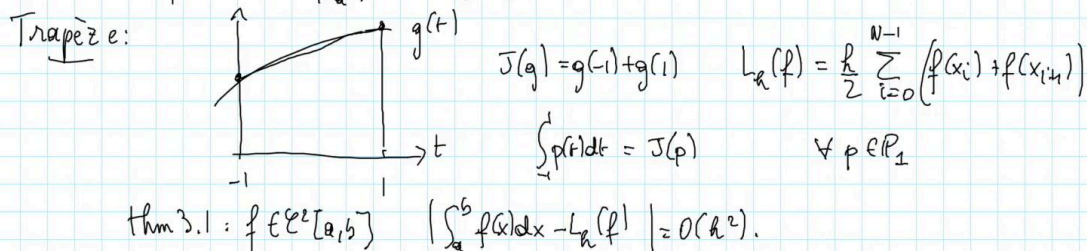 Trapèze:
g(t)
J(g) = g(-1) + g(1)
L_h(f) = h/2 \sum_{i=0}^{N-1} (f(x_i) + f(x_{i+1}))
t
-1
1
\int_{-1}^{1} p(t)dt = J(p) ∀ p ∈ ℙ_1
thm 3.1 : f ∈ C^2[a,b] |\int_a^b f(x)dx - L_h(f)| = O(h^2).